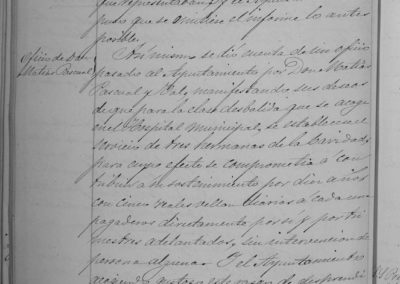 que representaban, y el Ayunta
para que se emitiese el informe lo antes
posible.
Oficio de Don
Matias Pascual
Así mismo se dió cuenta de un oficio
pasado al Ayuntamiento por Don Matias
Pascual y Val, manifestando sus deseos
de que para la clase desvalida que se acoge
en el Hospital Municipal, se establezca el
servicio de tres hermanas de la Caridad
para cuyo efecto se comprometia á con
tribuir a su sostenimiento por diez años
con cinco reales vellon diarios á cada una
pagaderos directamente por si y por tri
mestres adelantados, sin intervencion de
persona alguna. Y el Ayuntamiento
acogiendo gustoso este rasgo de desprendi